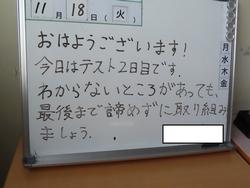 11月18日(火)
おはようございます!
今日はテスト2日目です.
わからないところがあっても、
最後まで諦めずに取り組み
ましょう.
月
水
木
金